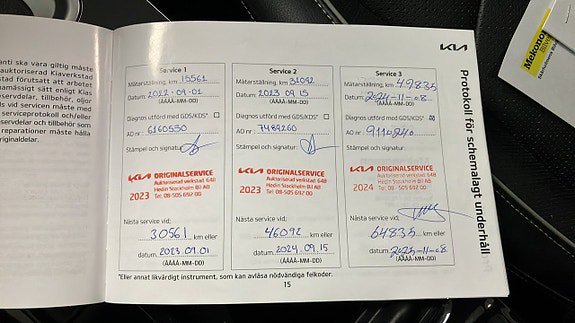 anti ska vara giltig måste
auktoriserad Kiaverkstad
stad förutsatt att arbetet
mässigt sätt enligt Kias
reservdelar, tillbehör, oljor
ls vid servicen måste med
serviceprotokoll och/eller
servdelar och tillbehör som
reparationer måste hålla
originaldelar.
KIA
Protokoll för schemalagt underhåll
Service 1
Mätarställning, km 15561
datum 2022-09-01
(ÅÅÅÅ-MM-DD)
Diagnos utförd med GDS/KDS*
AO-nr 6160550
Stämpel och signatur:
KIA ORIGINALSERVICE
Auktoriserad verkstad 648
Hedin Stockholm Bil AB
2023 Tel: 08-505 692 00
Nästa service vid;
30561 km eller
datum 2023.09.01
(ÅÅÅÅ-MM-DD)
Service 2
Mätarställning, km 31092
datum 2023 09.15
(ÅÅÅÅ-MM-DD)
Diagnos utförd med GDS/KDS*
AO-nr 7489260
Stämpel och signatur:
KIA ORIGINALSERVICE
Auktoriserad verkstad 648
Hedin Stockholm Bil AB
2023 Tel: 08-505 692 00
Nästa service vid;
46092 km eller
datum 2024.09.15
(ÅÅÅÅ-MM-DD)
Service 3
Mätarställning, km 49835
datum 2024-11-08
(ÅÅÅÅ-MM-DD)
Diagnos utförd med GDS/KDS*
AO-nr 9110840
Stämpel och signatur:
KIA ORIGINALSERVICE
Auktoriserad verkstad 648
Hedin Stockholm Bil AB
2024 Tel: 08-505 692 00
Nästa service vid;
64835 km eller
datum 2025-11-08
(ÅÅÅÅ-MM-DD)
*Eller annat likvärdigt instrument, som kan avläsa nödvändiga felkoder.
15
Mekonomen